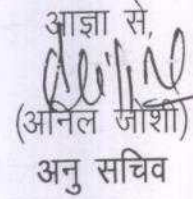 आज्ञा से,
(अनिल जोशी)
अनु सचिव